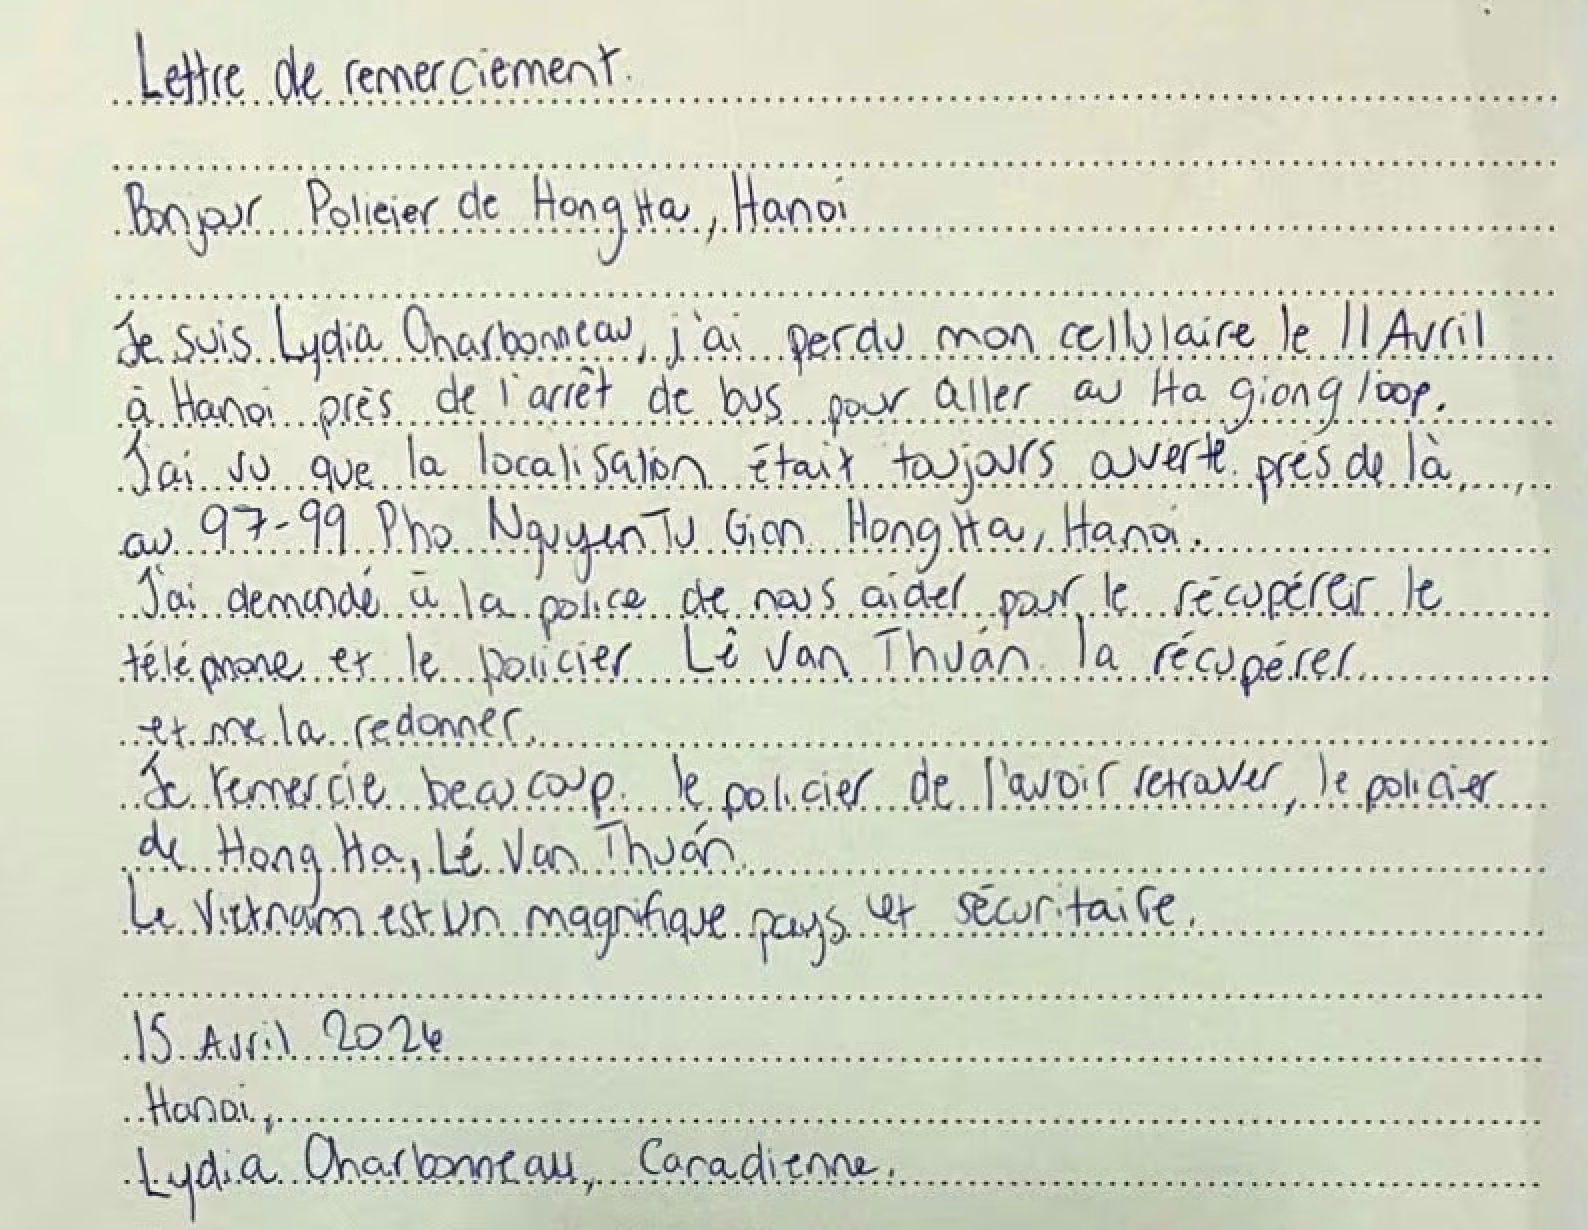 Lettre de remerciement.
Bonjour Policier de Hong Ha, Hanoi
Je suis Lydia Charbonneau, j'ai perdu mon cellulaire le 11 Avril
à Hanoi près de l'arrêt de bus pour aller au Ha giong loop.
J'ai vu que la localisation était toujours ouverte près de là,
au 97-99 Pho Nguyen Tu Gion Hong Ha, Hanoi.
J'ai demandé à la police de nous aider pour le récupérer le
téléphone et le policier Lê Van Thuán la récupérer
et me la redonner.
Je remercie beaucoup le policier de l'avoir retrouver, le policier
de Hong Ha, Lé Van Thuán.
Le Vietnam est un magnifique pays et sécuritaire.
15 Avril 2026
Hanoi,
Lydia Charbonneau, Canadienne.